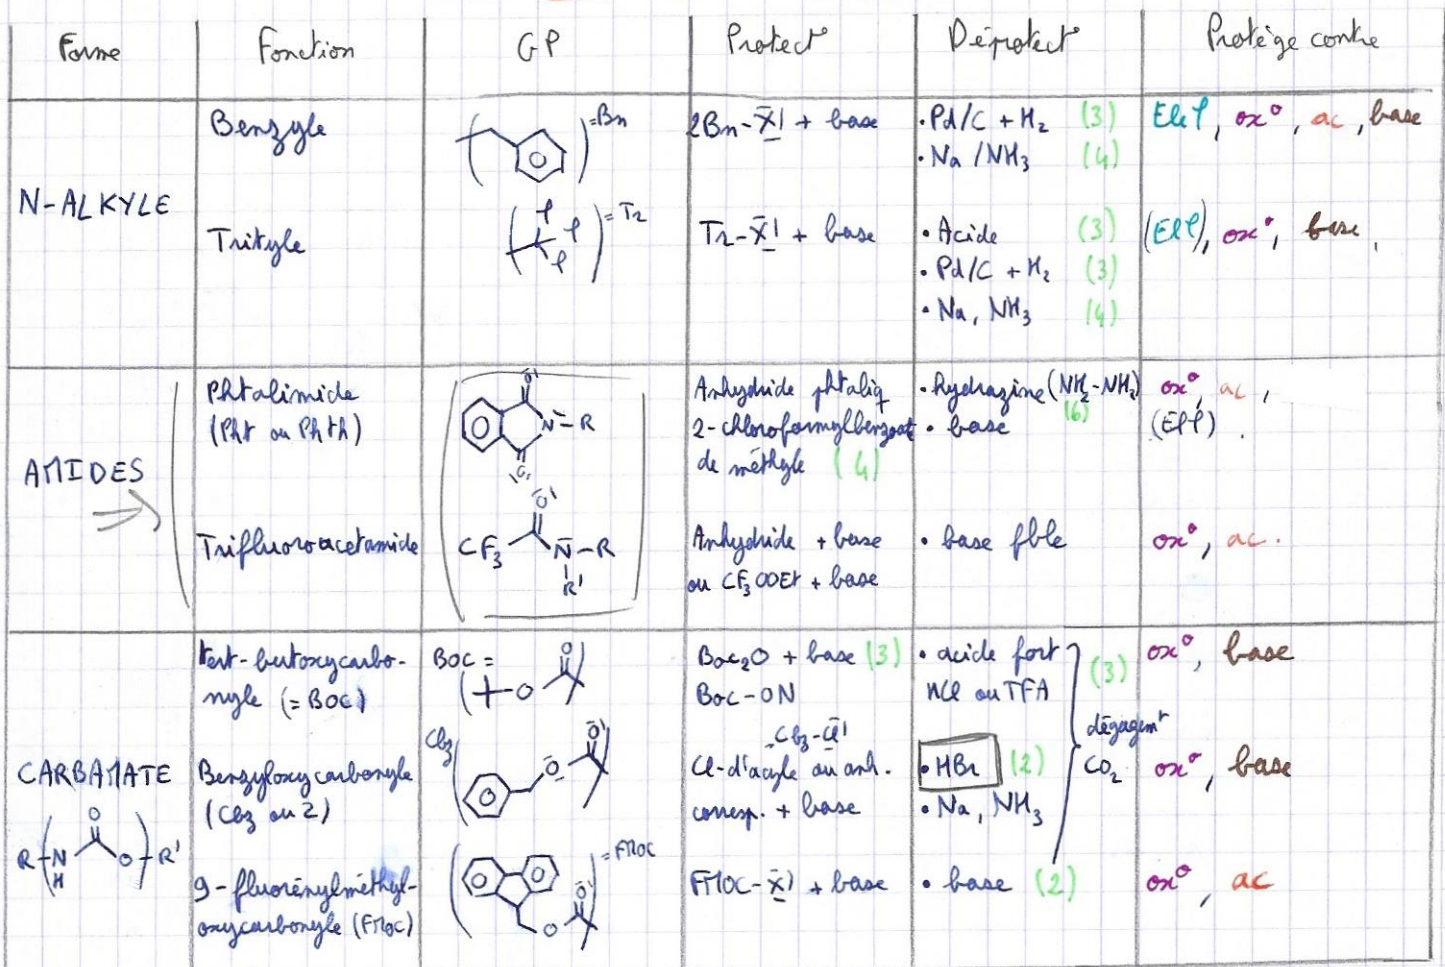 Forme Fonction GP Protect° Déprotect° Protège contre
N-ALKYLE
Benzyle
=Bn
2Bn-X + base
• Pd/C + H2 (3)
• Na /NH3 (4)
El&φ, ox°, ac, base
Trityle
φ φ φ
=Tr
Tr-X + base
• Acide (3)
• Pd/C + H2 (3)
• Na, NH3 (4)
ox°, base,
AMIDES
Phtalimide
(Pht ou Phth)
O
N-R
O
Anhydride phtaliq
2-chloroformylbenzoat
de méthyle (4)
• hydrazine (NH2-NH2)
(6)
• base
ox°, ac,
Trifluoroacetamide
O
CF3 N-R
R'
Anhydride + base
ou CF3OOEt + base
• base fble
ox°, ac.
CARBAMATE
O
R (N O) R'
H
tert-butoxycarbo-
nyle (=BOC)
BOC =
O
O
Boc2O + base (3)
Boc-ON
• acide fort
HCl ou TFA
(3)
dégagemt
CO2
ox°, base
Benzyloxycarbonyle
(Cbz ou Z)
Cbz
O
O
Cbz-Cl
Cl-d'acyle ou anh.
corresp. + base
• HBr (2)
• Na, NH3
ox°, base
9-fluorénylméthyl-
oxycarbonyle (FMOC)
=FMOC
O
O
FMOC-X + base
• base (2)
ox°, ac